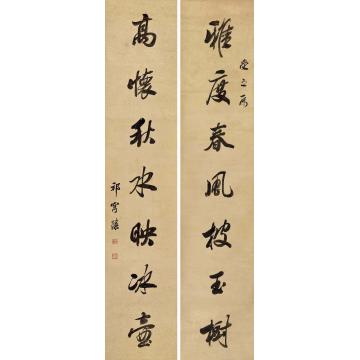 雅度春風披玉樹
高懷秋水映冰壺
祁寯藻